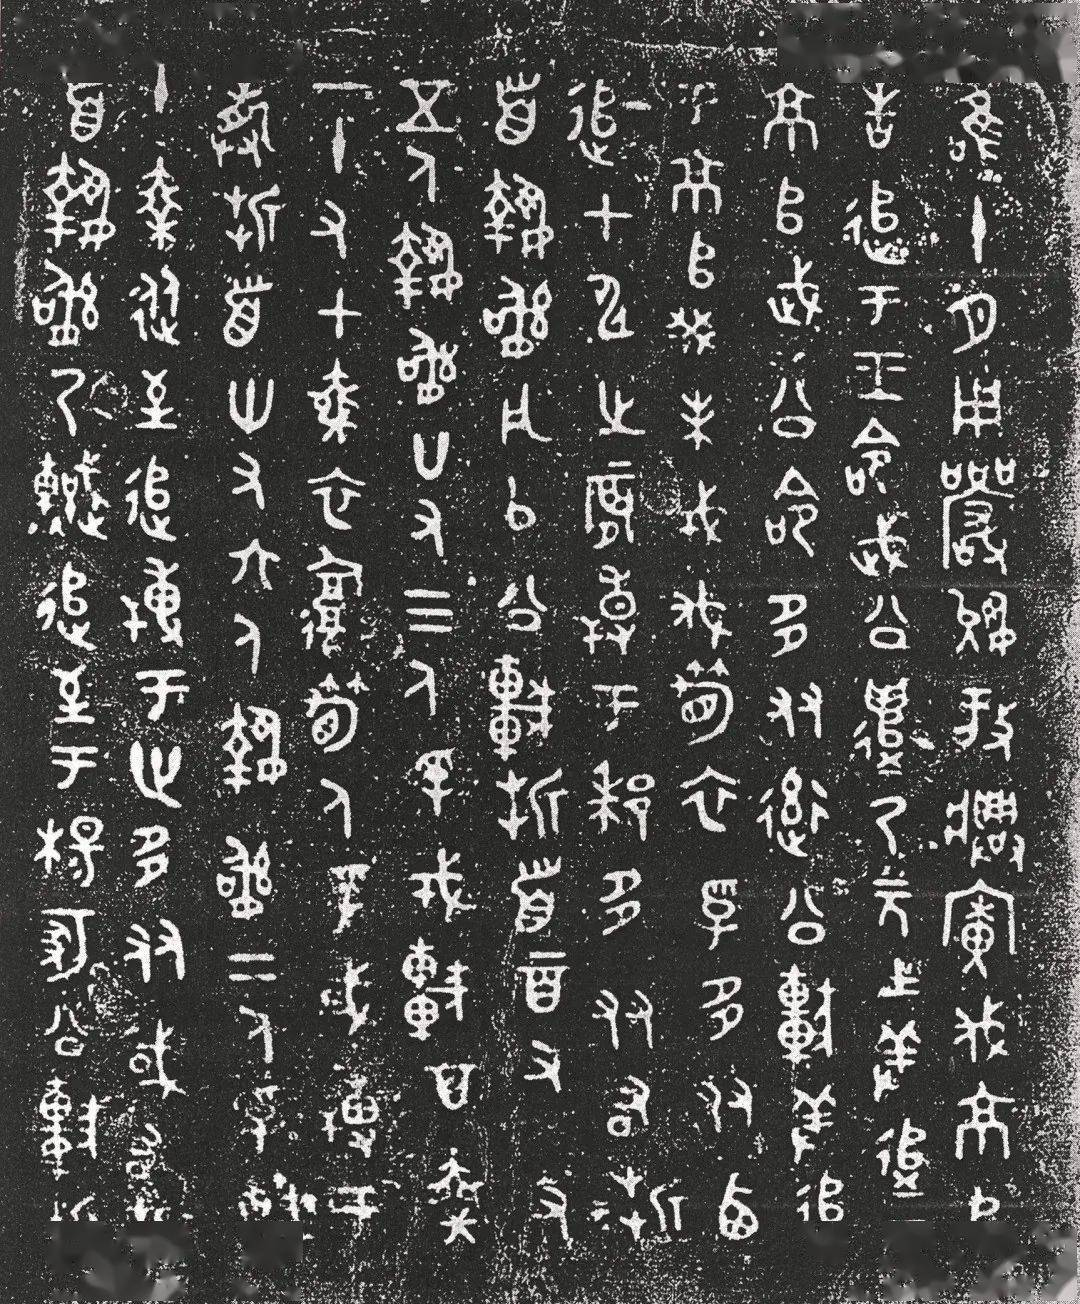 唯十月用嚴允放興廣伐京𠂤
告追于王命武公遣乃元士羞追于
京𠂤武公命多友率公車羞追
于京𠂤癸未戎伐筍衣孚多友西
追甲申之晨搏于郗多友右折
首執訊凡以公車折首二百又又
五人執訊廿又三人孚戎車百乘
一十又七乘衣復筍人孚或搏于
龏折首卅又六人執訊二人孚車
十乘從至追搏于世多友或右折
首執訊乃追至于楊冢公車折